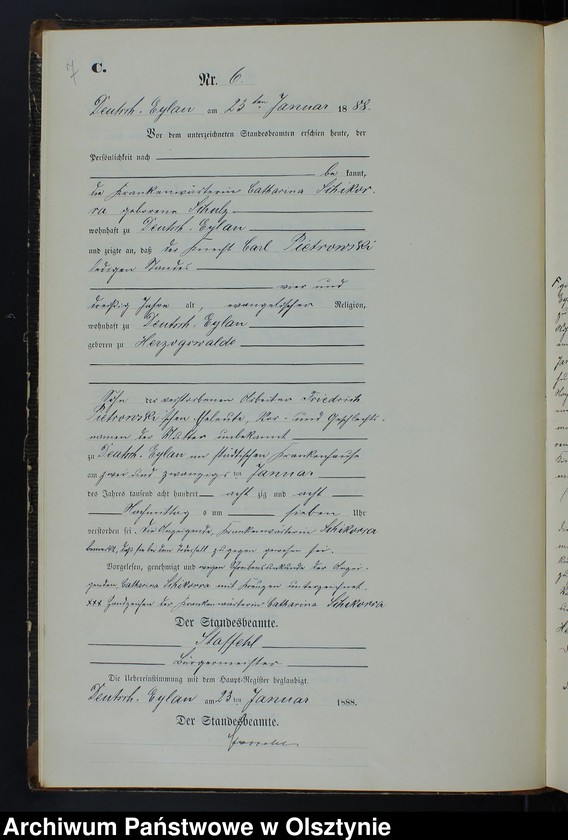 7
C.
Nr. 6.
Deutsch. Eylau am 23ten Januar 1888.
Vor dem unterzeichneten Standesbeamten erschien heute, der
Persönlichkeit nach
be kannt,
die Krankenwärterin Catharina Schikor-
ra geborene Schulz
wohnhaft zu Deutsch. Eylau
und zeigte an, daß der Knecht Carl Pietrowski
ledigen Standes
vier und
dreißig Jahre alt, evangelischer Religion,
wohnhaft zu Deutsch. Eylau
geboren zu Herzogswalde
Sohn der verstorbenen Arbeiter Friedrich
Pietrowski'schen Eheleute, Vor- und Geschlechts-
namen der Mutter unbekannt
zu Deutsch. Eylau im städtischen Krankenhause
am zwei und zwanzigsten Januar
des Jahres tausend acht hundert acht zig und acht
Nachmittags um sieben Uhr
verstorben sei. Die Anzeigende, Krankenwärterin Schikorra
bemerkt, daß sie bei dem Todesfall zugegen gewesen sei.
Vorgelesen, genehmigt und wegen Schreibensunkunde der Anzei-
genden, Catharina Schikorra mit Kreuzen unterzeichnet.
xxx Handzeichen der Krankenwärterin Catharina Schikorra
Der Standesbeamte.
Staffehl
Bürgermeister
Die Uebereinstimmung mit dem Haupt-Register beglaubigt.
Deutsch. Eylau am 23ten Januar 1888.
Der Standesbeamte.
Archiwum Państwowe w Olsztynie